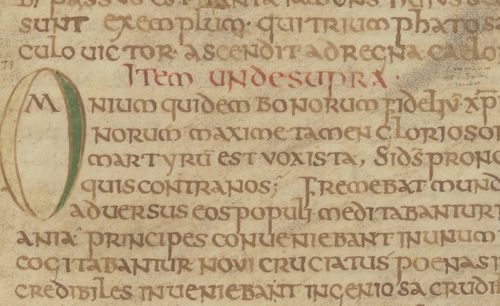 sunt exemplum · qui triumphatos
culo uictor · ascendit ad regna caelo
Item unde supra ·
Omnium quidem bonorum fideliũ xp̄
norum maxime tamen glorioso
martyrũ est uox ista, Si d̄s pro no
quis contra nos; Fremebat mund
aduersus eos populi meditabantur
ania principes conueniebant in unum
cogitabantur noui cruciatus poenas i
credibiles inueniebant ingeniosa crudi